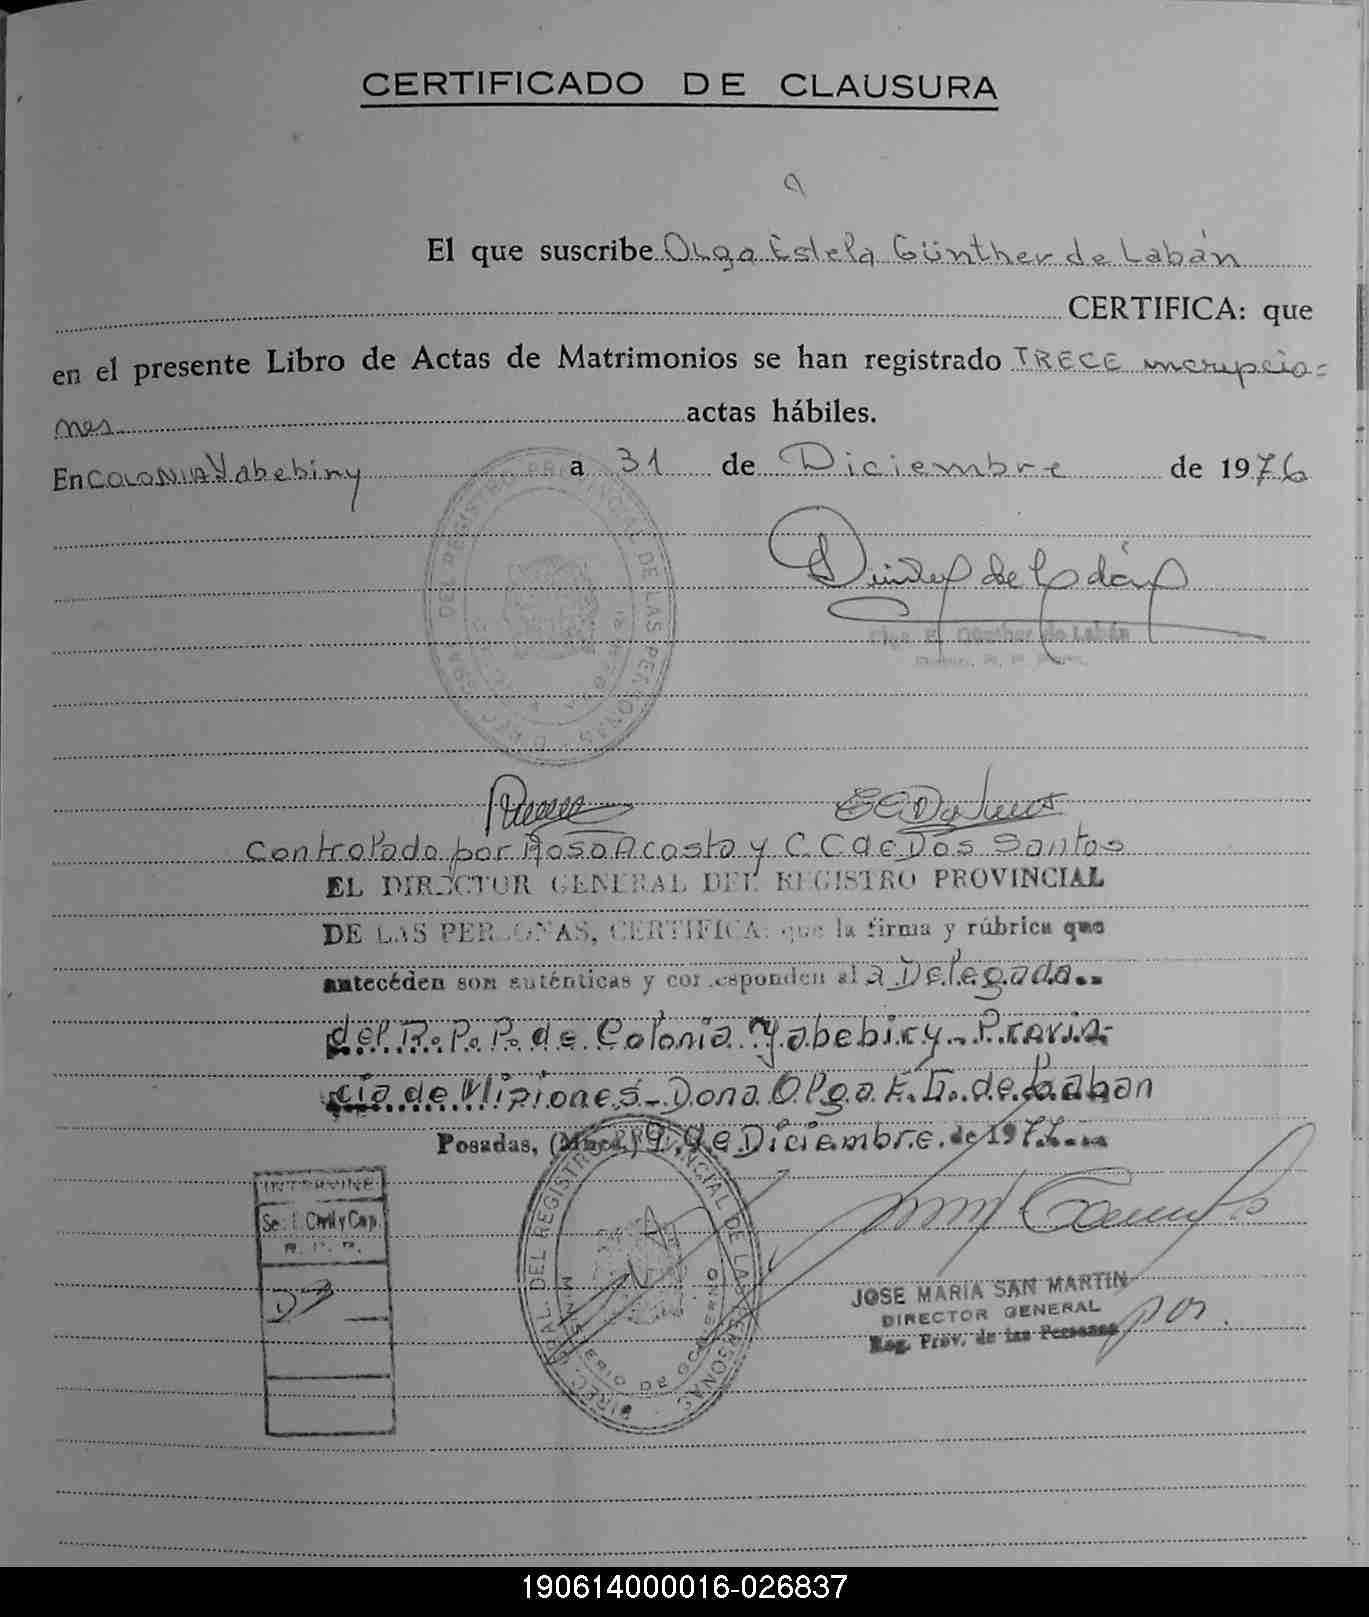 CERTIFICADO DE CLAUSURA
El que suscribe Olga Estela Günther de Labán
CERTIFICA: que
en el presente Libro de Actas de Matrimonios se han registrado TRECE inscripcio=
nes actas hábiles.
En COLONIA Yabebiry a 31 de Diciembre de 1976
Olga E. Günther de Labán
Controlado por Rosa Acosta y C C de Dos Santos
EL DIRECTOR GENERAL DEL REGISTRO PROVINCIAL
DE LAS PERSONAS, CERTIFICA: que la firma y rúbrica que
antecéden son auténticas y corresponden al a Delegada
del R. P. P. de Colonia Yabebiry - Provin-
cia de Misiones - Dona Olga E. G. de Laban
Posadas, (Mnes.) 9 de Diciembre de 1977
DIREC. GRAL. DEL REGISTRO PROVINCIAL DE LAS PERSONAS
MINISTERIO DE GOBIERNO
INTERVINE
Sec. I. Civil y Cap.
R. P. P.
JOSE MARIA SAN MARTIN
DIRECTOR GENERAL
Reg. Prov. de las Personas
por
190614000016-026837